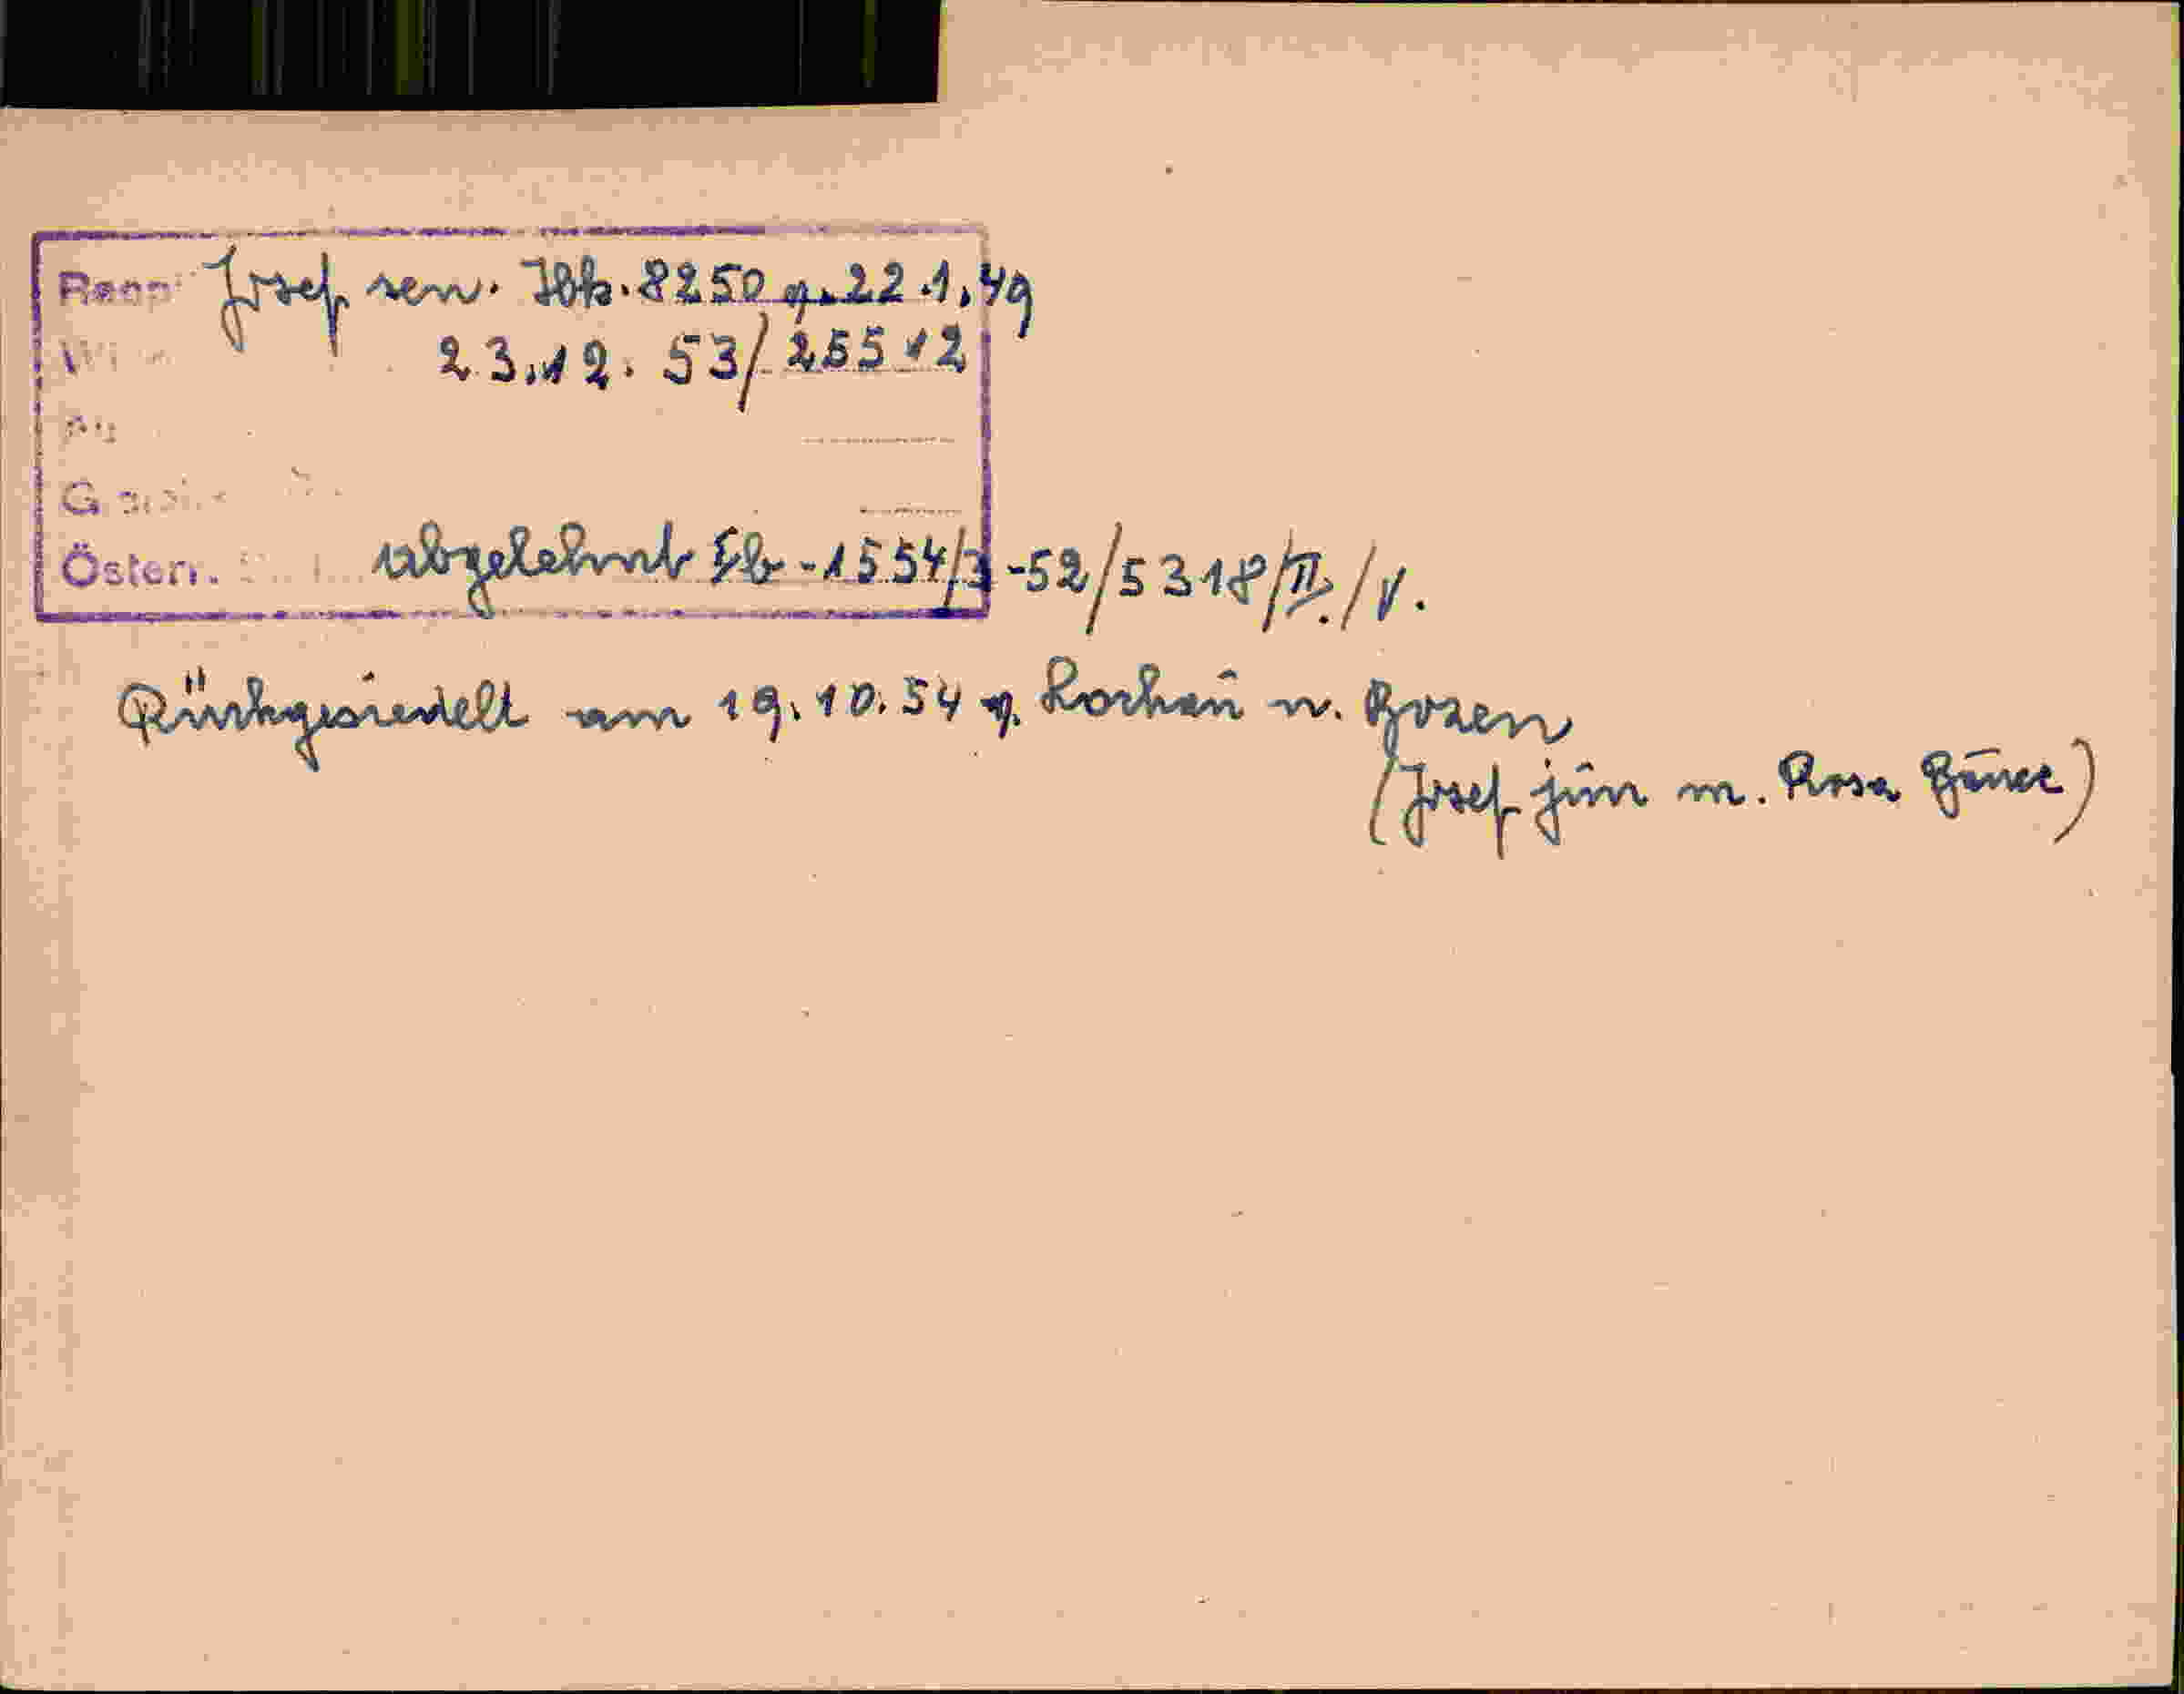 Josef sen. Ibk. 8250 v. 22.1.49
23.12.53/25512
Österr. abgelehnt Ib-1554/3-52/5318/II./V.
Rückgesiedelt am 19.10.54 v. Lochau n. Bozen
(Josef jun m. Rosa